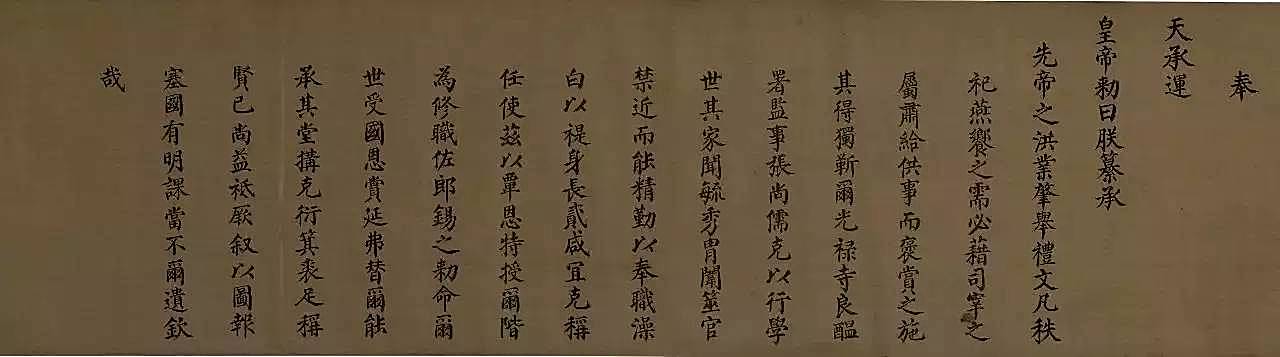 奉
天承運
皇帝勑曰朕纂承
先帝之洪業肇舉禮文凡秩
祀燕饗之需必藉司宰之
屬肅給供事而褒賞之施
其得獨靳爾光禄寺良醞
署監事張尚儒克以行學
世其家聞毓秀胄闈筮官
禁近而能精勤以奉職澡
白以禔身長貳咸宜克稱
任使茲以覃恩特授爾階
為修職佐郎錫之勑命爾
世受國恩賞延弗替爾能
承其堂搆克衍箕裘足稱
賢已尚益祗厥叙以圖報
塞國有明課當不爾遺欽
哉